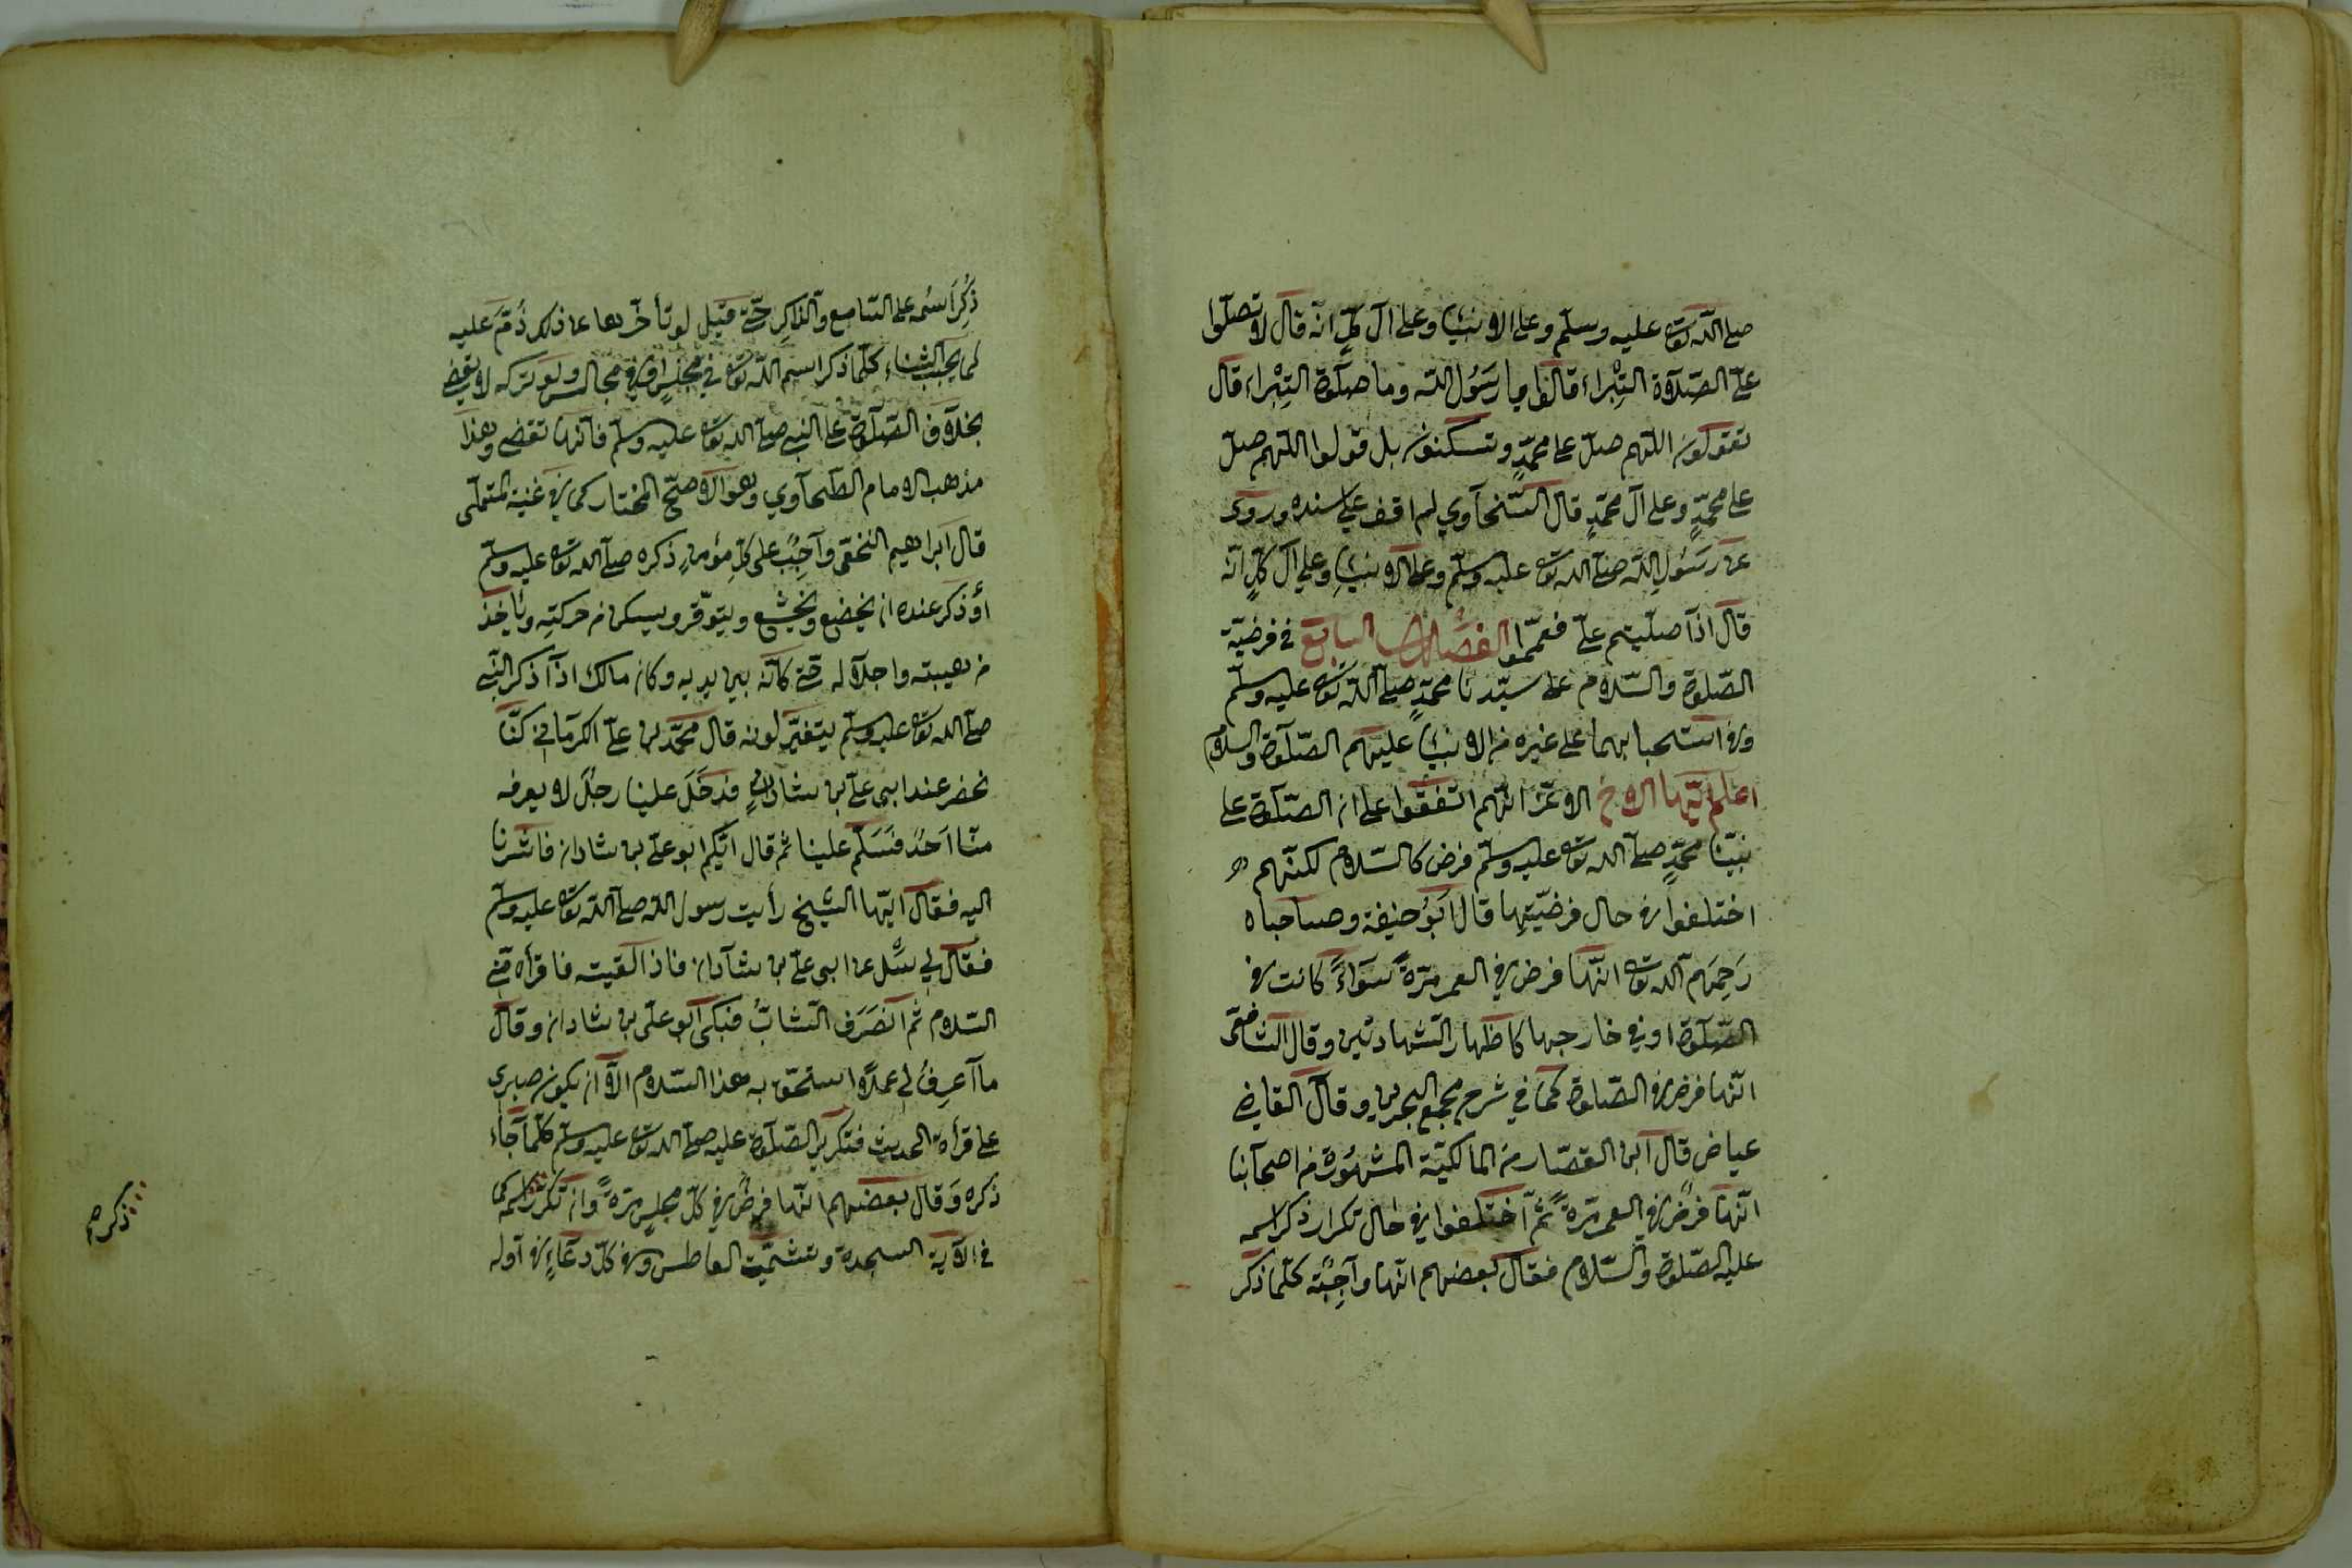 صلى الله تعا عليه وسلم وعلى الانبياء وعلى آل كل انه قال لا تصلّوا
علىّ الصّلاة البتراء قالوا يا رسول الله وما صلوة البتراء قال
تقولون اللهم صل على محمّدٍ وتسكنون بل قولوا اللهم صل
على محمّدٍ وعلى آل محمّدٍ قال السّخاوي لم اقف على سنده وروى
عن رسول الله صلى الله تعا عليه وسلم وعلى الانبياء وعلى آل كلٍ انه
قال اذا صليتم علىّ فعمّموا الفصل السابع في فرضيّة
الصّلوة والسّلام على سيّدنا محمّدٍ صلى الله تعا عليه وسلم
وفى استحبابهما على غيره من الانبياء عليهم الصّلوة والسلام
اعلم ايّها الاخ الاعزّ انّهم اتفقوا على ان الصّلوة على
نبيّنا محمّدٍ صلى الله تعا عليه وسلم فرض كالسّلام لكنّهم
اختلفوا فى حال فرضيّتها قال ابو حنيفة وصاحباه
رحمهم الله تعا انّها فرض في العمر مرّةً سواءً كانت فى
الصّلوة او في خارجها كاظهار الشهادتين وقال الشافعّى
انّها فرض فى الصّلوة كما في شرح مجمع البحرين وقال القاضي
عياض قال ابن القصّار من المالكيّة المشهور من اصحابنا
انّها فرض في العمر مرّةً ثم اختلفوا فى حال تكرار ذكر اسمه
عليه الصّلوة والسّلام فقال بعضهم انّها واجبة كلّما ذكر
ذكر اسمه على السّامع والذاكر حتى قيل لو تأخّر بها عن ذلك ذُمّ عليه
كما يجب الثناء كلّما ذكر اسم الله تعا في مجلس او في مجالس ولو تركه لا يقضى
بخلاف الصّلوة على النبى صلى الله تعا عليه وسلم فانّها تقضى وهذا
مذهب الامام الطّحاوي وهو الاصحّ المختار كما فى غنية المتملى
قال ابراهيم النخعّى واجبٌ على كل مؤمن ذكره صلى الله تعا عليه وسلم
أو ذكر عنده ان يخضع ويخشع ويتوقّر ويسكن من حركته ويأخذ
من هيبته واجلاله حتى كانّه بين يديه وكان مالك اذا ذكر النبى
صلى الله تعا عليه وسلم يتغيّر لونه قال محمّد بن علىّ الكرمانى كنّا
نحضر عند ابى علىّ بن شاذان فدخل علينا رجلٌ لا يعرفه
منّا احدٌ فسلّم علينا ثم قال ايّكم ابو علىّ بن شاذان فاشرنا
اليه فقال ايّها الشيخ رأيت رسول الله صلى الله تعا عليه وسلم
فقال لى سل عن ابى علىّ بن شاذان فاذا لقيته فاقرأه منّى
السّلام ثم انصرف الشابّ فبكى ابو علىّ بن شاذان وقال
ما اعرف لى عملاً استحق به هذا السّلام الاّ ان يكون صبرى
على قرأة الحديث فتكرير الصّلوة عليه صلى الله تعا عليه وسلم كلّما جاء
ذكره وقال بعضهم انّها فرض في كلّ مجلسٍ مرّةً وان تكرّر اسمه كما
في الآية السجدة وتشميت العاطس وفى كلّ دعاءٍ فى اوله
ذكره صح